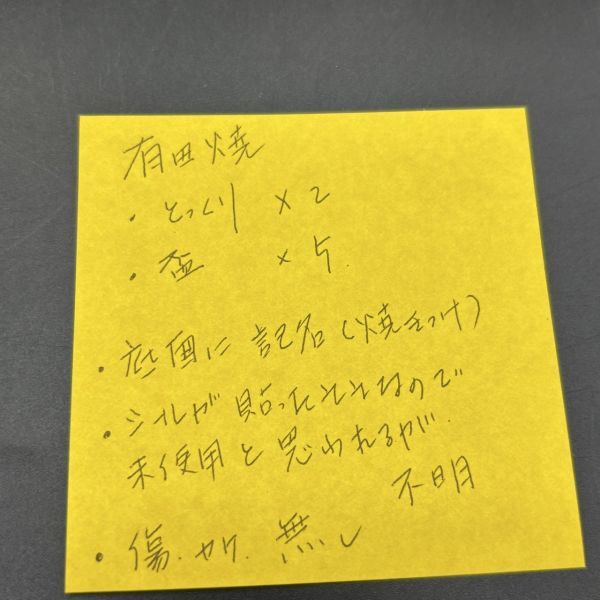 有田焼
・とっくり ×2
・盃 ×5.
・底面に記名(焼きつけ)
・シールが貼ったままなので
未使用と思われるが.
不明
・傷.カケ.無し